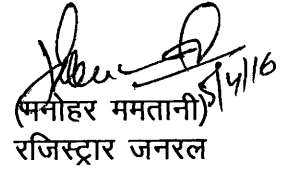 5/4/16
(मनोहर ममतानी)
रजिस्ट्रार जनरल